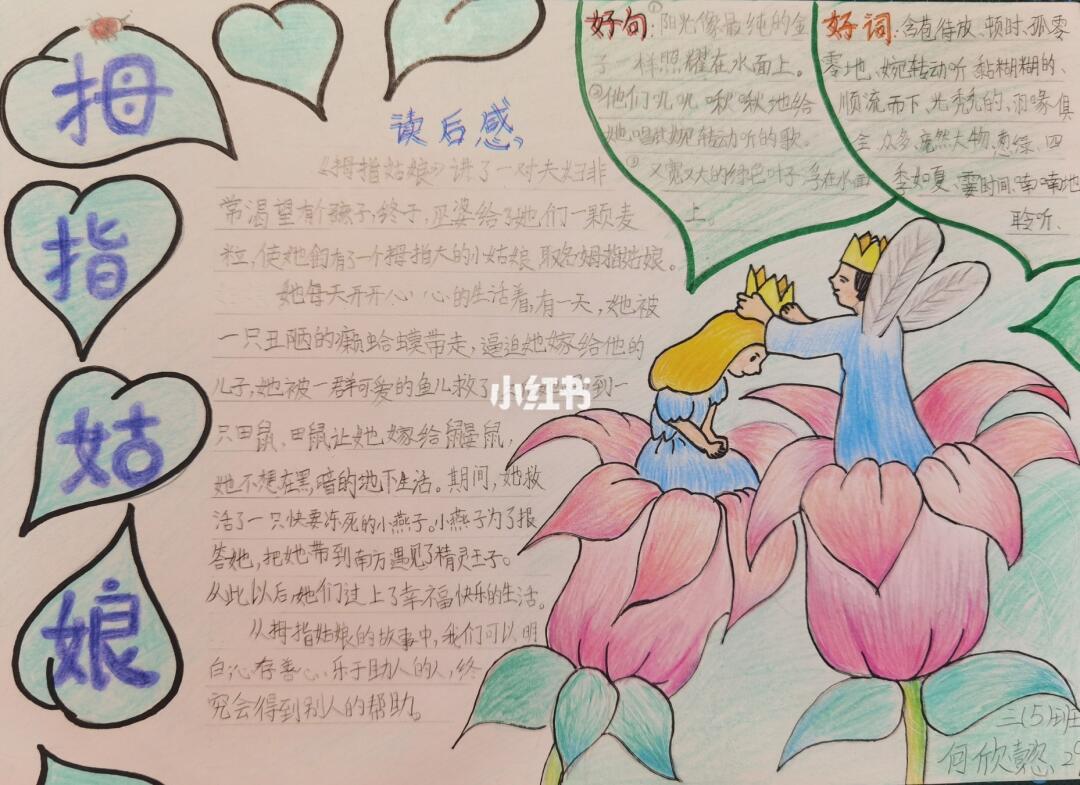 拇
指
姑
娘
读后感
《拇指姑娘》讲了一对夫妇非
常渴望有个孩子,终于,巫婆给了她们一颗麦
粒,使她们有了一个拇指大的小姑娘,取名拇指姑娘。
她每天开开心心的生活着,有一天,她被
一只丑陋的癞蛤蟆带走,逼迫她嫁给他的
儿子,她被一群可爱的鱼儿救了 到一
只田鼠、田鼠让她嫁给鼹鼠,
她不想在黑暗的地下生活。期间,她救
活了一只快要冻死的小燕子。小燕子为了报
答她,把她带到南方遇见了精灵王子。
从此以后她们过上了幸福快乐的生活。
从拇指姑娘的故事中,我们可以明
白:心存善心、乐于助人的人,终
究会得到别人的帮助。
好句:①阳光像最纯的金
子一样照耀在水面上。
②他们叽叽啾啾地给
她唱起婉转动听的歌
③又宽又大的绿色叶子浮在水面
上。
好词:含苞待放、顿时、孤零
零地、婉转动听 黏糊糊的、
顺流而下、光秃秃的、面缘俱
全 众多、庞然大物、葱绿、四
季如夏、霎时间、喃喃地
聆听、
小红书
三(5)班
何欣懿